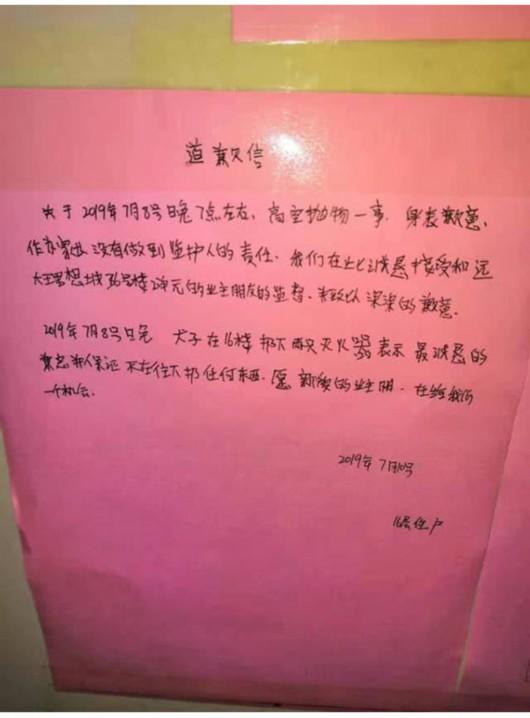 道歉信
关于2019年7月8号日晚7点左右,高空抛物一事.身表歉意,
作为家长没有做到监护人的责任.我们在此诚恳接受和远
大理想城36号楼2单元的业主朋友的监督.致以深深的歉意.
2019年7月8号日晚 犬子在16楼扔下两只灭火器表示最诚恳的
保证不在往下扔任何东西.愿 的业主朋.在给我们
一个机会.
2019年7月10号
16层住户